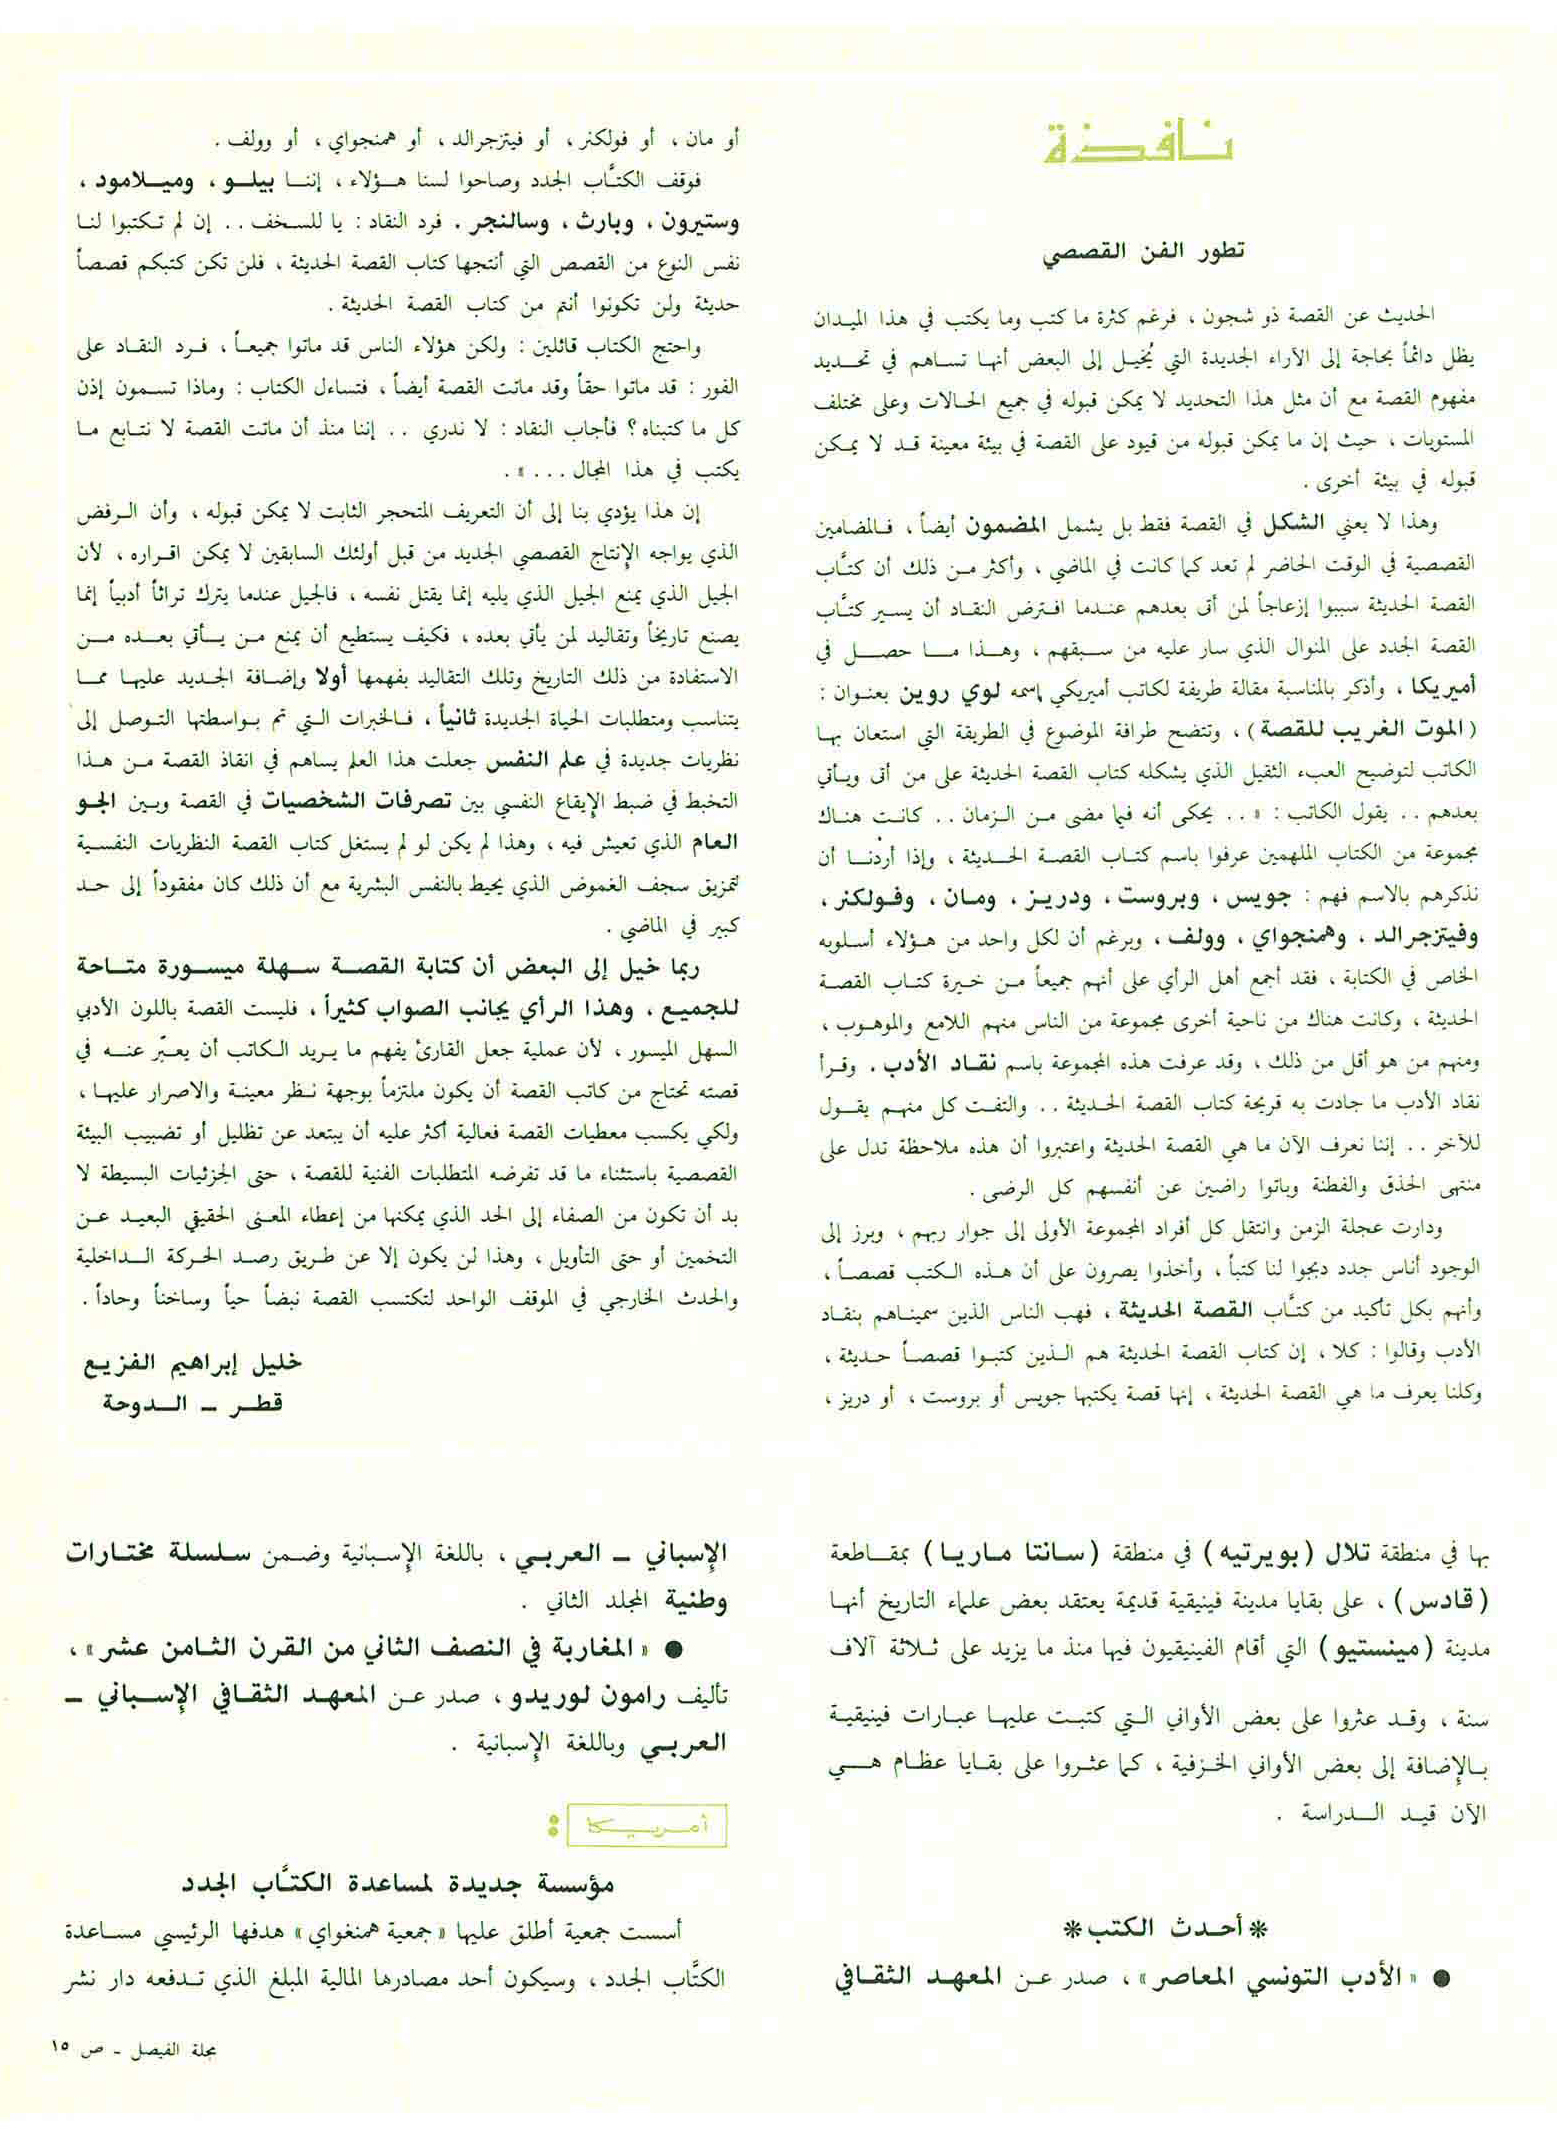 نافذة
تطور الفن القصصي
الحديث عن القصة ذو شجون ، فرغم كثرة ما كتب وما يكتب في هذا الميدان
يظل دائماً بحاجة إلى الآراء الجديدة التي يُخيل إلى البعض أنها تساهم في تحديد
مفهوم القصة مع أن مثل هذا التحديد لا يمكن قبوله في جميع الحالات وعلى مختلف
المستويات ، حيث إن ما يمكن قبوله من قيود على القصة في بيئة معينة قد لا يمكن
قبوله في بيئة أخرى .
وهذا لا يعني الشكل في القصة فقط بل يشمل المضمون أيضاً ، فالمضامين
القصصية في الوقت الحاضر لم تعد كما كانت في الماضي ، وأكثر من ذلك أن كتَّاب
القصة الحديثة سببوا إزعاجاً لمن أتى بعدهم عندما افترض النقاد أن يسير كتَّاب
القصة الجدد على المنوال الذي سار عليه من سبقهم ، وهذا ما حصل في
أميريكا ، وأذكر بالمناسبة مقالة طريفة لكاتب أميريكي إسمه لوي روين بعنوان :
(الموت الغريب للقصة) ، وتتضح طرافة الموضوع في الطريقة التي استعان بها
الكاتب لتوضيح العبء الثقيل الذي يشكله كتاب القصة الحديثة على من أتى ويأتي
بعدهم .. يقول الكاتب : « .. يحكى أنه فيما مضى من الزمان .. كانت هناك
مجموعة من الكتاب الملهمين عرفوا باسم كتاب القصة الحديثة ، وإذا أردنا أن
نذكرهم بالاسم فهم : جويس ، وبروست ، ودريز ، ومان ، وفولكنر ،
وفيتزجرالد ، وهمنجواي ، وولف ، وبرغم أن لكل واحد من هؤلاء أسلوبه
الخاص في الكتابة ، فقد أجمع أهل الرأي على أنهم جميعاً من خيرة كتاب القصة
الحديثة ، وكانت هناك من ناحية أخرى مجموعة من الناس منهم اللامع والموهوب ،
ومنهم من هو أقل من ذلك ، وقد عرفت هذه المجموعة باسم نقاد الأدب . وقرأ
نقاد الأدب ما جادت به قريحة كتاب القصة الحديثة .. والتفت كل منهم يقول
للآخر .. إننا نعرف الآن ما هي القصة الحديثة واعتبروا أن هذه ملاحظة تدل على
منتهى الحذق والفطنة وباتوا راضين عن أنفسهم كل الرضى .
ودارت عجلة الزمن وانتقل كل أفراد المجموعة الأولى إلى جوار ربهم ، وبرز إلى
الوجود أناس جدد دبجوا لنا كتباً ، وأخذوا يصرون على أن هذه الكتب قصصاً ،
وأنهم بكل تأكيد من كتَّاب القصة الحديثة ، فهب الناس الذين سميناهم بنقاد
الأدب وقالوا : كلا ، إن كتاب القصة الحديثة هم الذين كتبوا قصصاً حديثة ،
وكلنا يعرف ما هي القصة الحديثة ، إنها قصة يكتبها جويس أو بروست ، أو دريز ،
أو مان ، أو فولكنر ، أو فيتزجرالد ، أو همنجواي ، أو وولف .
فوقف الكتَّاب الجدد وصاحوا لسنا هؤلاء ، إننا بيلو ، وميلامود ،
وستيرون ، وبارث ، وسالنجر . فرد النقاد : يا للسخف .. إن لم تكتبوا لنا
نفس النوع من القصص التي أنتجها كتاب القصة الحديثة ، فلن تكن كتبكم قصصاً
حديثة ولن تكونوا أنتم من كتاب القصة الحديثة .
واحتج الكتاب قائلين : ولكن هؤلاء الناس قد ماتوا جميعاً ، فرد النقاد على
الفور : قد ماتوا حقاً وقد ماتت القصة أيضاً ، فتساءل الكتاب : وماذا تسمون إذن
كل ما كتبناه ؟ فأجاب النقاد : لا ندري .. إننا منذ أن ماتت القصة لا نتابع ما
يكتب في هذا المجال ... » .
إن هذا يؤدي بنا إلى أن التعريف المتحجر الثابت لا يمكن قبوله ، وأن الرفض
الذي يواجه الإنتاج القصصي الجديد من قبل أولئك السابقين لا يمكن اقراره ، لأن
الجيل الذي يمنع الجيل الذي يليه إنما يقتل نفسه ، فالجيل عندما يترك تراثاً أدبياً إنما
يصنع تاريخاً وتقاليد لمن يأتي بعده ، فكيف يستطيع أن يمنع من يأتي بعده من
الاستفادة من ذلك التاريخ وتلك التقاليد بفهمها أولا وإضافة الجديد عليها مما
يتناسب ومتطلبات الحياة الجديدة ثانياً ، فالخبرات التي تم بواسطتها التوصل إلى
نظريات جديدة في علم النفس جعلت هذا العلم يساهم في انقاذ القصة من هذا
التخبط في ضبط الإيقاع النفسي بين تصرفات الشخصيات في القصة وبين الجو
العام الذي تعيش فيه ، وهذا لم يكن لو لم يستغل كتاب القصة النظريات النفسية
لتمزيق سجف الغموض الذي يحيط بالنفس البشرية مع أن ذلك كان مفقوداً إلى حد
كبير في الماضي .
ربما خيل إلى البعض أن كتابة القصة سهلة ميسورة متاحة
للجميع ، وهذا الرأي يجانب الصواب كثيراً ، فليست القصة باللون الأدبي
السهل الميسور ، لأن عملية جعل القارئ يفهم ما يريد الكاتب أن يعبّر عنه في
قصته تحتاج من كاتب القصة أن يكون ملتزماً بوجهة نظر معينة والاصرار عليها ،
ولكي يكسب معطيات القصة فعالية أكثر عليه أن يبتعد عن تظليل أو تضبيب البيئة
القصصية باستثناء ما قد تفرضه المتطلبات الفنية للقصة ، حتى الجزئيات البسيطة لا
بد أن تكون من الصفاء إلى الحد الذي يمكنها من إعطاء المعنى الحقيقي البعيد عن
التخمين أو حتى التأويل ، وهذا لن يكون إلا عن طريق رصد الحركة الداخلية
والحدث الخارجي في الموقف الواحد لتكتسب القصة نبضاً حياً وساخناً وحاداً .
خليل إبراهيم الفزيع
قطر ــ الدوحة
بها في منطقة تلال (بويرتيه) في منطقة (سانتا ماريا) بمقاطعة
(قادس) ، على بقايا مدينة فينيقية قديمة يعتقد بعض علماء التاريخ أنها
مدينة (مينستيو) التي أقام الفينيقيون فيها منذ ما يزيد على ثلاثة آلاف
سنة ، وقد عثروا على بعض الأواني التي كتبت عليها عبارات فينيقية
بالإضافة إلى بعض الأواني الخزفية ، كما عثروا على بقايا عظام هي
الآن قيد الدراسة .
* أحدث الكتب *
● « الأدب التونسي المعاصر » ، صدر عن المعهد الثقافي
الإسباني ــ العربي ، باللغة الإسبانية وضمن سلسلة مختارات
وطنية المجلد الثاني .
● « المغاربة في النصف الثاني من القرن الثامن عشر » ،
تأليف رامون لوريدو ، صدر عن المعهد الثقافي الإسباني ــ
العربي وباللغة الإسبانية .
أمريكا :
مؤسسة جديدة لمساعدة الكتَّاب الجدد
أسست جمعية أطلق عليها « جمعية همنغواي » هدفها الرئيسي مساعدة
الكتَّاب الجدد ، وسيكون أحد مصادرها المالية المبلغ الذي تدفعه دار نشر
مجلة الفيصل ــ ص ١٥